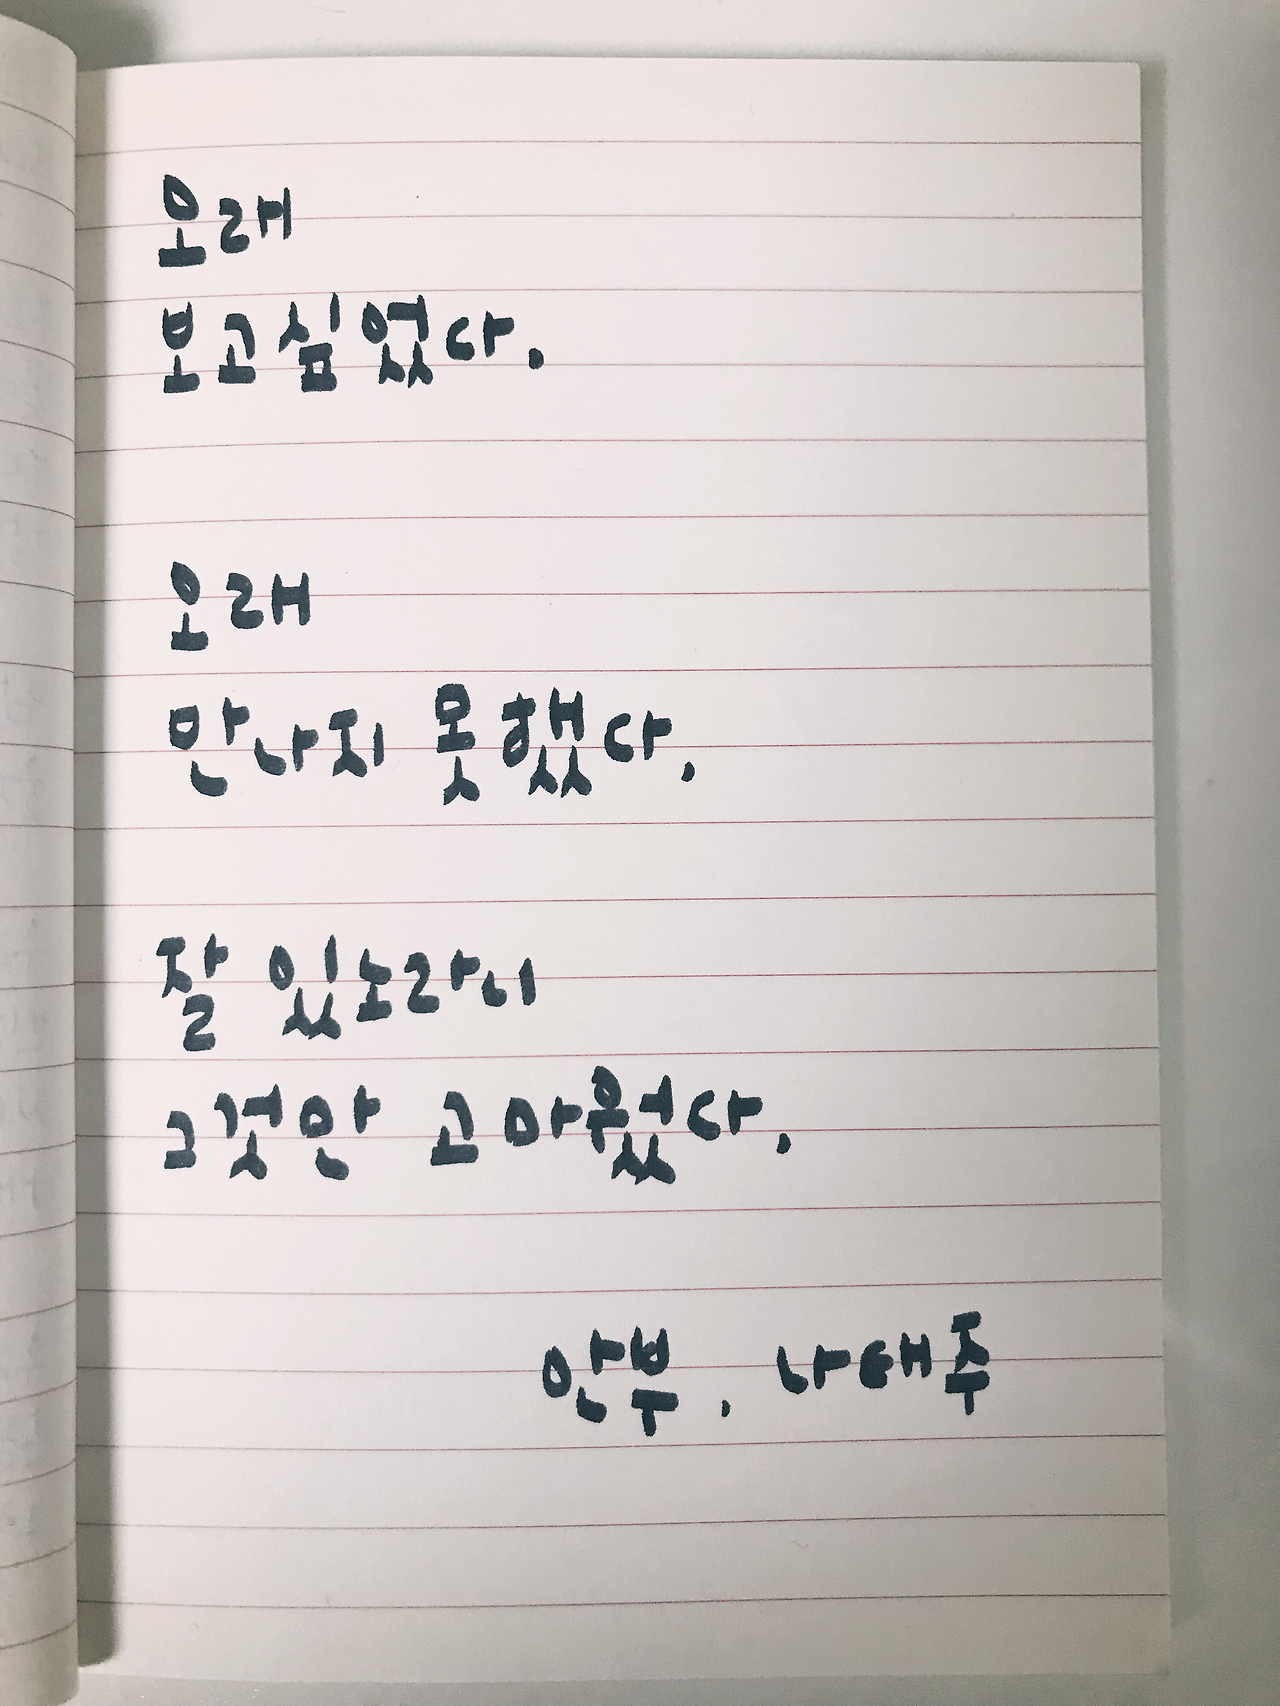 오래
보고싶었다.
오래
만나지 못했다.
잘 있노라니
그것만 고마웠다.
안부, 나태주